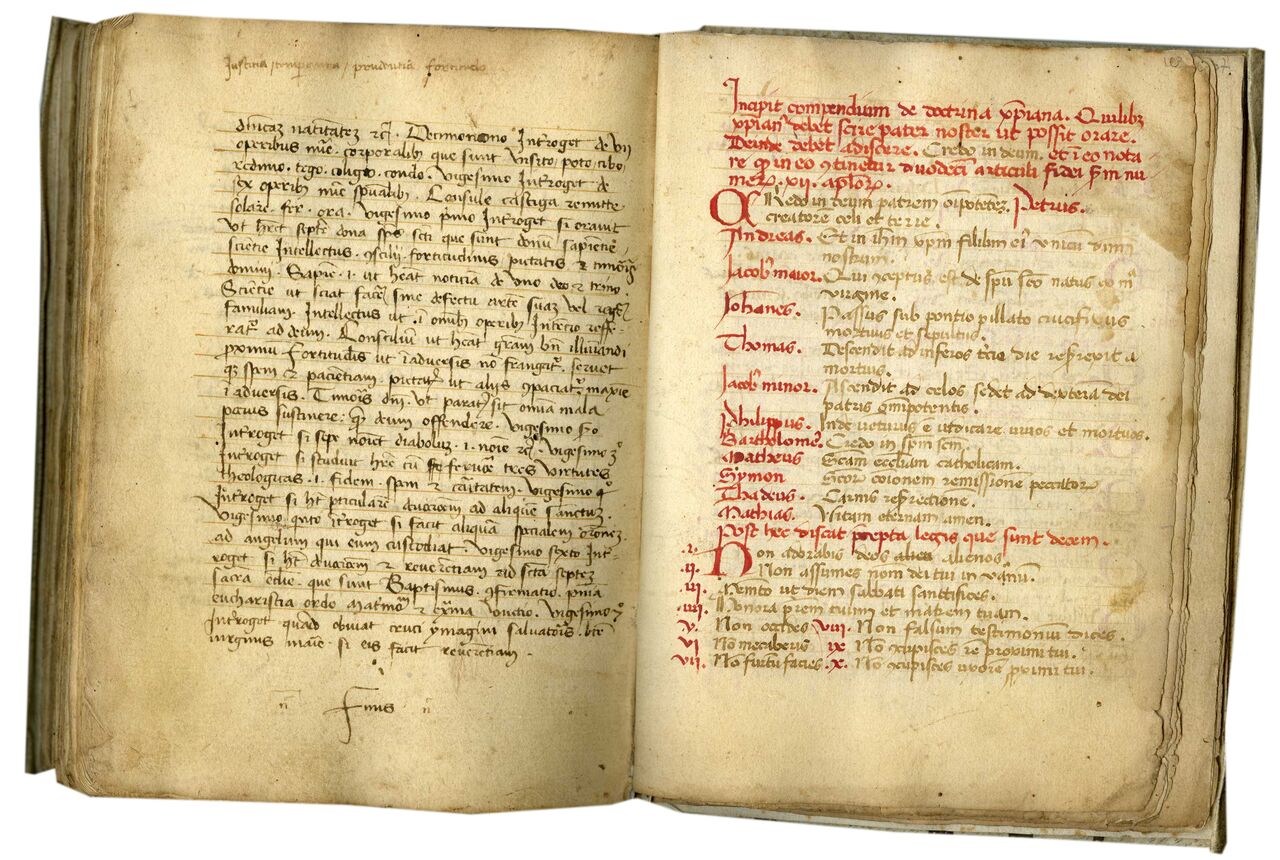 Justicia / temperancia / prudencia fortitudo
natitatez rcͣ. Decimonono Introget de vii
operibus mīe. corporalib que sunt visito. poto. cibo.
redimo. tego. coligo. condo. Vigesimo Introget de
operib mīe spūalib. Consule castiga remitte.
solare. fer. ora. Vigesimo pmo Introget si orauit
vt heret septē dona spūs scti que sunt donū sapiētie.
sciētie Intellectus. fortitudinis pietatis & timoris
domini. Sapiē. i. ut heat noticiā de uno deo & trino
Sciētie ut sciat facē sine defectu artē suaz vel
familiam. Intellectus ut. ī omīb operib Intecio reffe-
ratͬ ad deum. Consilium ut heat grām bn̄ illuminandi
proximū Fortitudis ut ī aduersis nō frangatͬ. seruet
spem & paciētiam. ut aliis gpaciatͬ maxie
ī aduersis. Timoris dnī. ut paratͬ sit omīa mala
sustinere. deum offendere. Vigesimo
Introget si sepe noīet diabolus. i. noīe rcͣ. Vigesimo
Introget si studuit herē cū feruore tres virtutes
theologicas. i. fidem. spem & caritatem. Vigesimo
Introget si ht pticularē deuocioēm ad aliquē sanctum.
Vigesimo qnto itroget si facit aliquā specialem oronez
ad angelum qui eum custodiat. Vigesimo sexto Int-
roget si ht deuocioēm & reuerētiam ad scta septez
sacrā eccliē. que sunt Baptismus. gfirmatio. pnīa
eucharistia ordo matmo & exͭma vnctio. Vigesimo
Introget quādo obuiat cruci ymagini saluatoris. btē
uirginis marie. si eis facit reuerētiam.
Finis
Incipit compendium de doctrina xp̄iana. Quilibꝫ
xp̄ianꝰ debet scire pater noster ut possit orare.
Deinde debet adiscere. Credo in deum. et ī eo nota
re ꝙ in eo ↄtinetur duodeci articuli fidei scͫm nu
merꝫ. xii. aplorꝫ.
CRedo in deum patrem oīpotētez. Petrus.
creatore celi et terre.
Andreas. Et in ihm xp̄m filium eiꝰ vnicū dnm
nostrum.
Jacobꝰ maior. Qui ↄceptus est de spū scō natus ex mͣ
virgine.
Johānes. Passus sub pontio pillato crucifixus
mortuus et sepultus.
Thomas. Descendit ad inferos tercia die resͬrexit a
mortuis.
Jacobꝰ minor. Ascendit ad celos sedet ad dexterā dei
patris omīpotentis.
Philippus. Inde vēturus ē iudicare viuos et mortuos.
Bartholomeꝰ. Credo in spm scm.
Matheus Scām ecclēiam catholicam.
Symon Scōrꝫ coīonem remissione peccatorꝫ
Thadeus. Carnis resͬrectione.
Mathias. Vitam eternam amen.
Post hec discat precepta legis que sunt decem.
.i. Non adorabis deos alieu alienos.
.ii. Non assumes nom dei tui in vanū.
.iii. Memto ut diem sabbati santifices.
.iiii. Honora pr̄em tuum et matrem tuam.
v. Non occides viii. Non falsum testimoniū dices
vi Nō mecaberis ix Nō ↄcupisces rē proximi tui.
vii. Nō furtū facies. x. Nō ↄcupisces vxorē proximi tui.